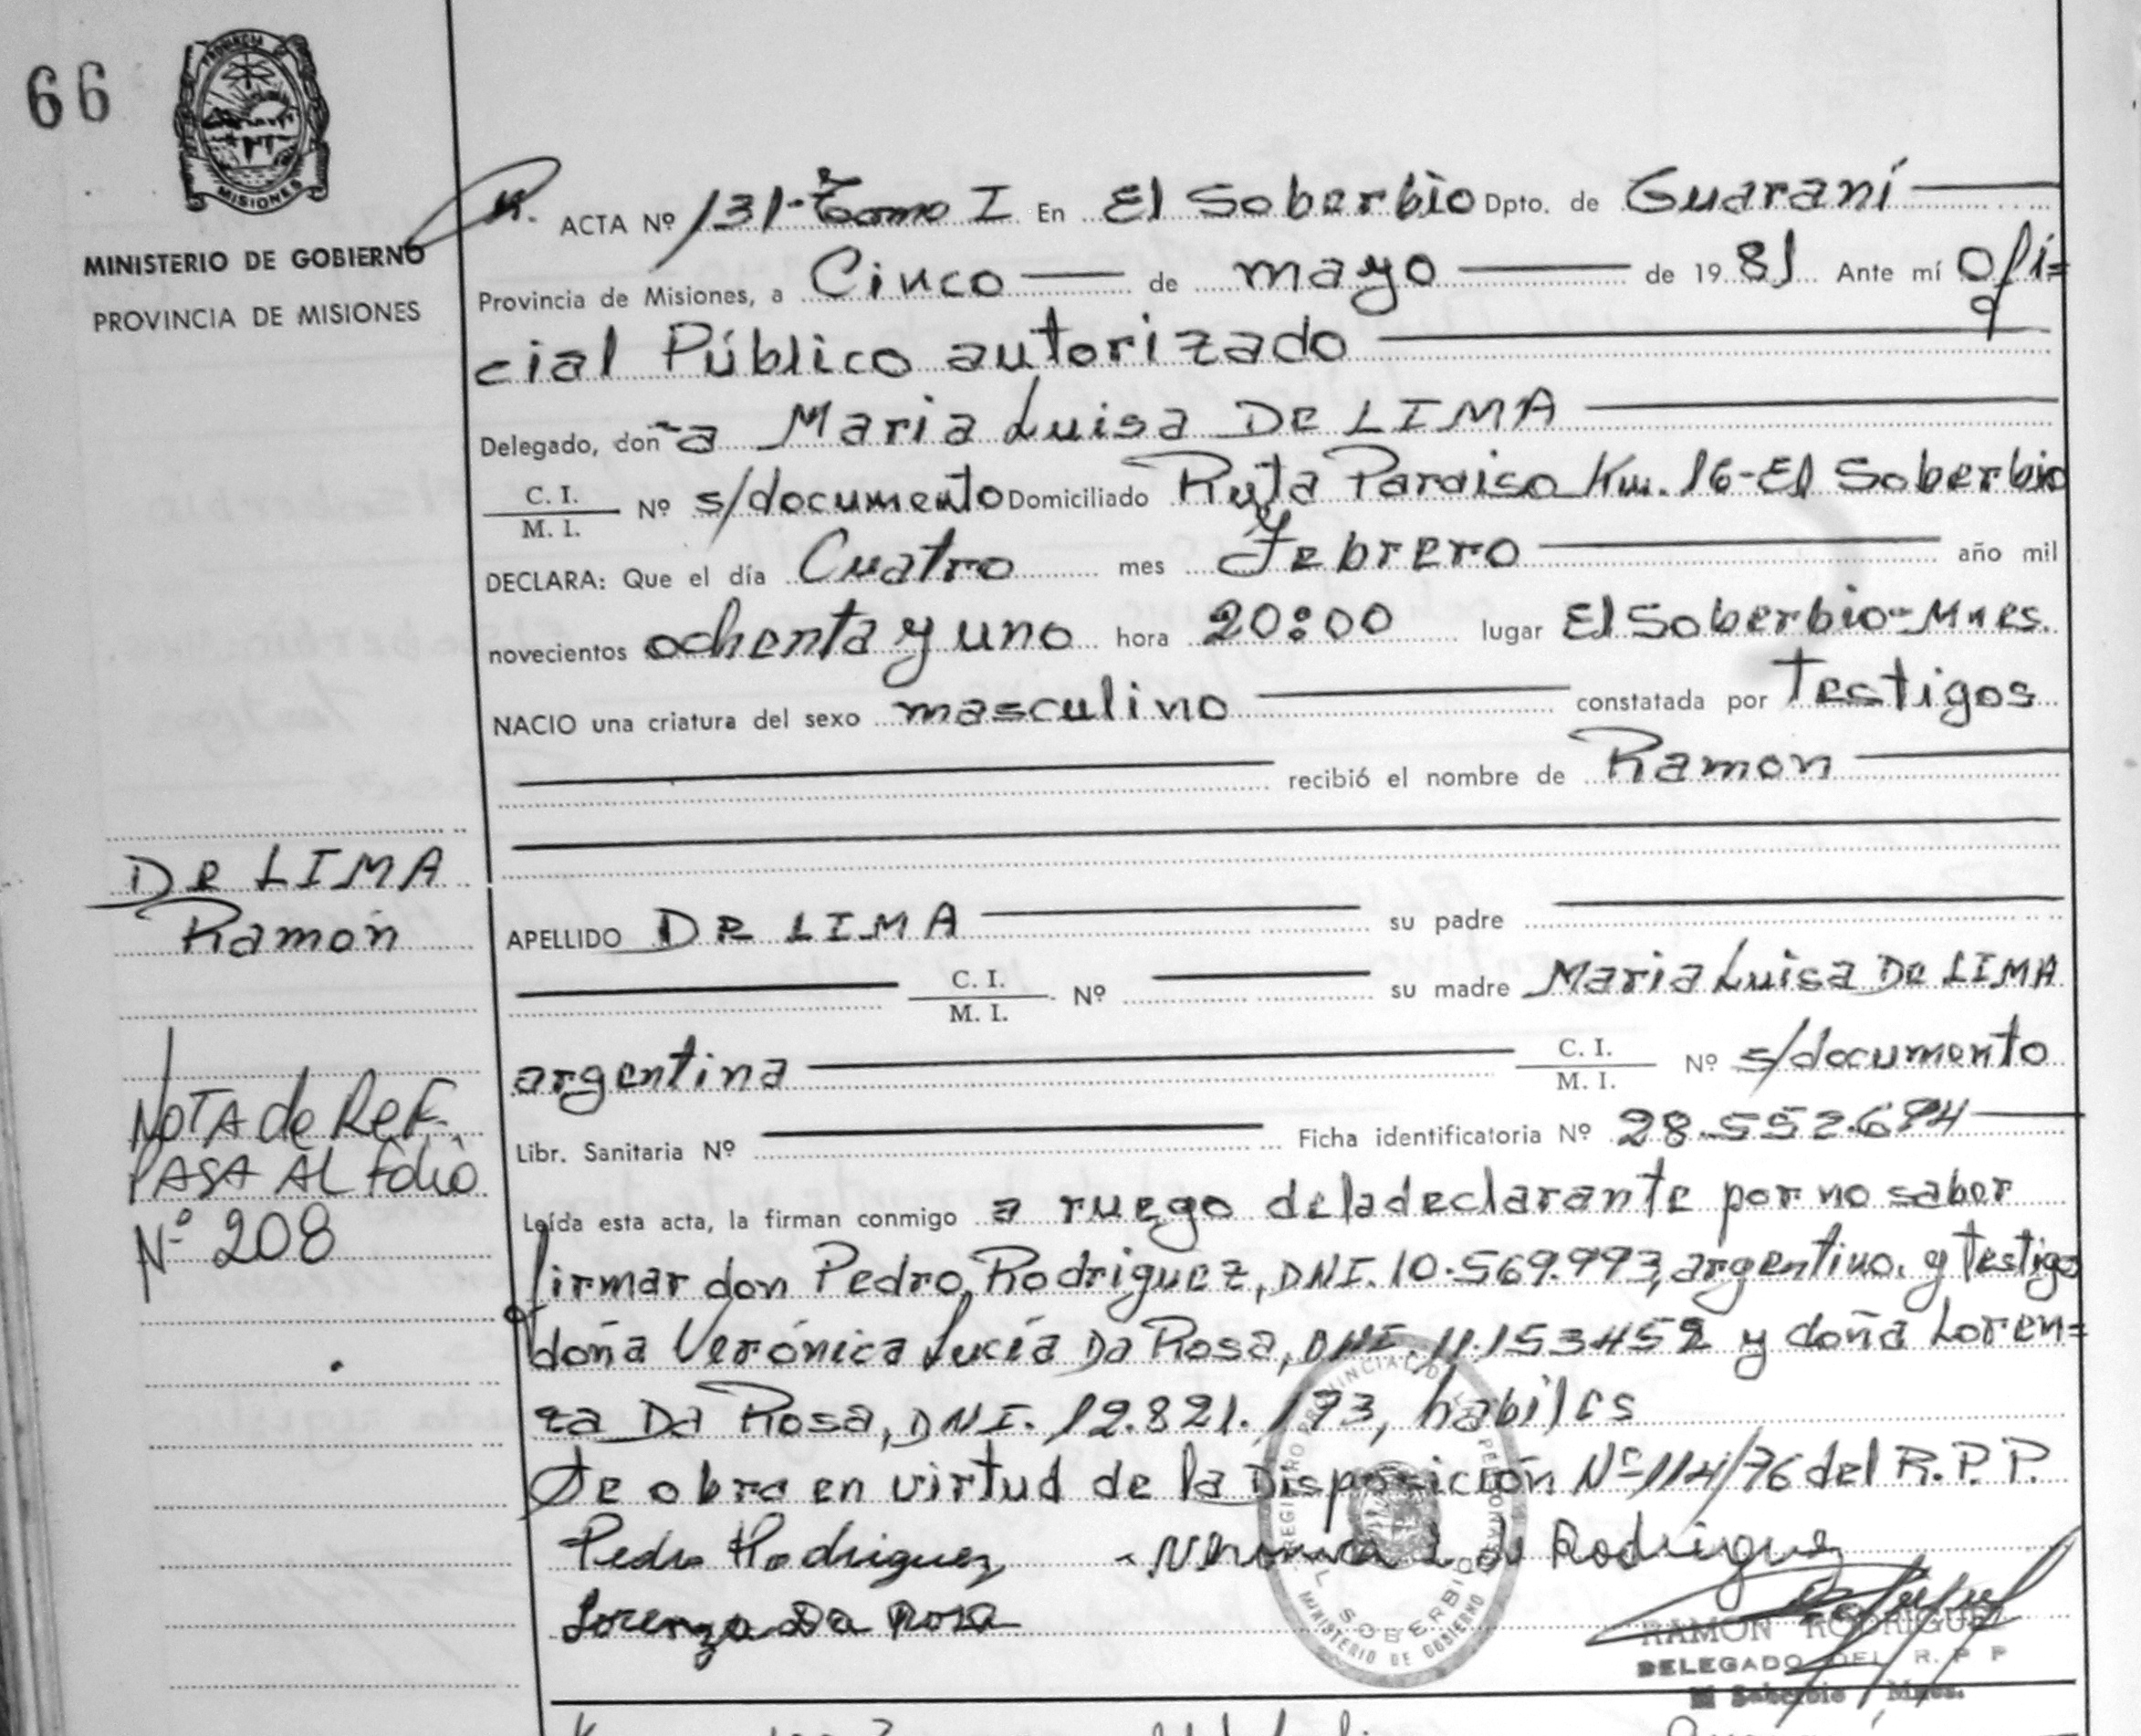 66
PROVINCIA DE
MISIONES
MINISTERIO DE GOBIERNO
PROVINCIA DE MISIONES
ACTA Nº 131-Tomo I En El Soberbio Dpto. de Guaraní
Provincia de Misiones, a Cinco de mayo de 1981 Ante mí Ofi=
cial Público autorizado
Delegado, doña Maria Luisa De LIMA
C. I.
M. I. Nº s/documento Domiciliado Ruta Paraiso Km. 16-El Soberbio
DECLARA: Que el día Cuatro mes Febrero año mil
novecientos ochenta y uno hora 20:00 lugar El Soberbio-Mnes.
NACIO una criatura del sexo masculino constatada por Testigos
recibió el nombre de Ramon
De LIMA
Ramón
APELLIDO De LIMA su padre
C. I.
M. I. Nº su madre Maria Luisa De LIMA
argentina C. I.
M. I. Nº s/documento
Libr. Sanitaria Nº Ficha identificatoria Nº 28.552.694
NOTA de REF.
PASA AL Folio
Nº 208
Leída esta acta, la firman conmigo a ruego deladeclarante por no saber
firmar don Pedro Rodriguez, DNI. 10.569.993, argentino. y testigo
doña Verónica Lucía Da Rosa, DNI. 11.153452 y doña Loren=
za Da Rosa, DNI. 12.821.193, habiles
de obra en virtud de la Disposición Nº 114/76 del R.P.P.
Pedro Rodriguez Veronica L de Rodriguez
Lorenza Da Rosa
REGISTRO PROVINCIAL DE LAS PERSONAS
EL SOBERBIO
MINISTERIO DE GOBIERNO
RAMON RODRIGUEZ
DELEGADO DEL R. P. P
El Soberbio, Mnes.